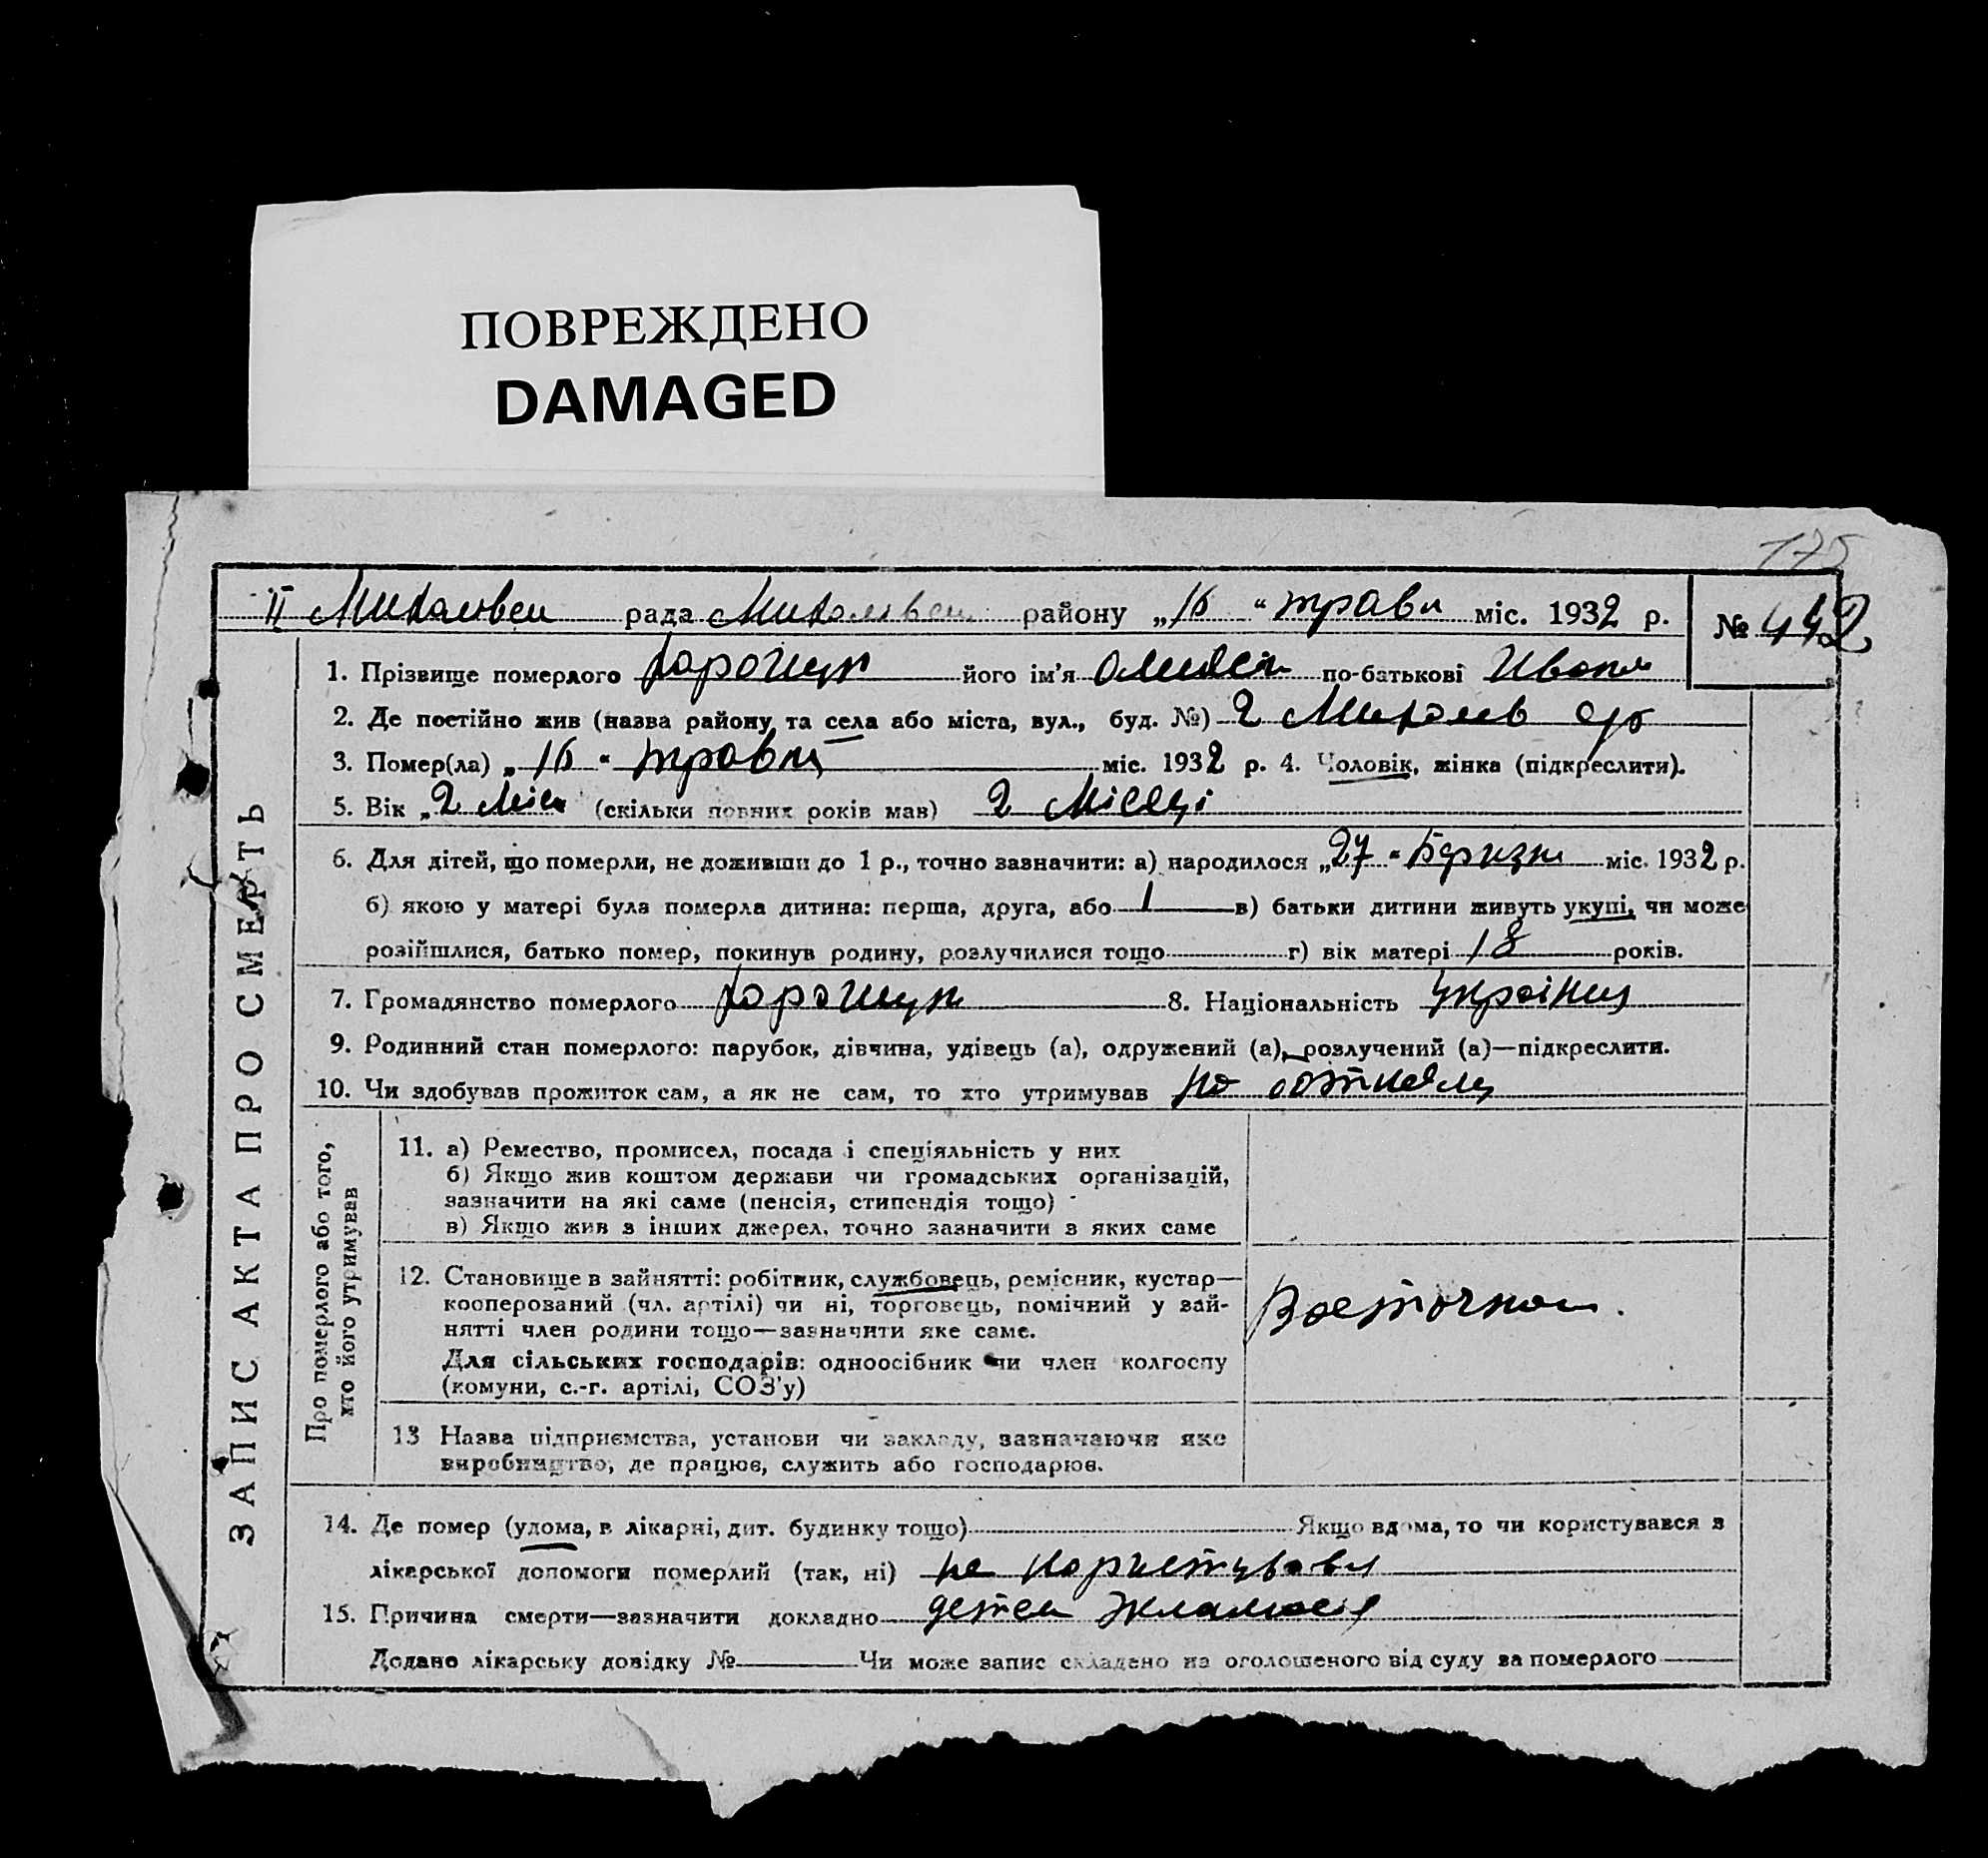 ПОВРЕЖДЕНО
DAMAGED
175
II рада району „16“ травн міс. 1932 р. № 442
1. Прізвище померлого його ім'я по-батькові Иван
2. Де постійно жив (назва району та села або міста, вул., буд. №) 2
3. Помер(ла) „16“ травня міс. 1932 р. 4. Чоловік, жінка (підкреслити).
5. Вік „2 міся (скільки повних років мав) 2 місяці
6. Для дітей, що померли, не доживши до 1 р., точно зазначити: а) народилося „27“ міс. 1932 р.
б) якою у матері була померла дитина: перша, друга, або 1 в) батьки дитини живуть укупі, чи може
розійшлися, батько помер, покинув родину, розлучилися тощо г) вік матері 18 років.
7. Громадянство померлого 8. Національність україниц
9. Родинний стан померлого: парубок, дівчина, удівець (а), одружений (а), розлучений (а)—підкреслити.
10. Чи здобував прожиток сам, а як не сам, то хто утримував
ЗАПИС АКТА ПРО СМЕРТЬ
Про померлого або того,
хто його утримував
11. а) Ремество, промисел, посада і спеціяльність у них
б) Якщо жив коштом держави чи громадських організацій,
зазначити на які саме (пенсія, стипендія тощо)
в) Якщо жив з інших джерел, точно зазначити з яких саме
12. Становище в зайнятті: робітник, службовець, ремісник, кустар—
кооперований (чл. артілі) чи ні, торговець, помічний у зай-
нятті член родини тощо—зазначити яке саме.
Для сільських господарів: одноосібник чи член колгоспу
(комуни, с.-г. артілі, СОЗ'у)
13 Назва підприємства, установи чи закладу, зазначаючи яке
виробництво, де працює, служить або господарює.
14. Де помер (удома, в лікарні, дит. будинку тощо) Якщо вдома, то чи користувався з
лікарської допомоги померлий (так, ні) не
15. Причина смерти—зазначити докладно
Додано лікарську довідку № Чи може запис складено на оголошеного від суду за померлого